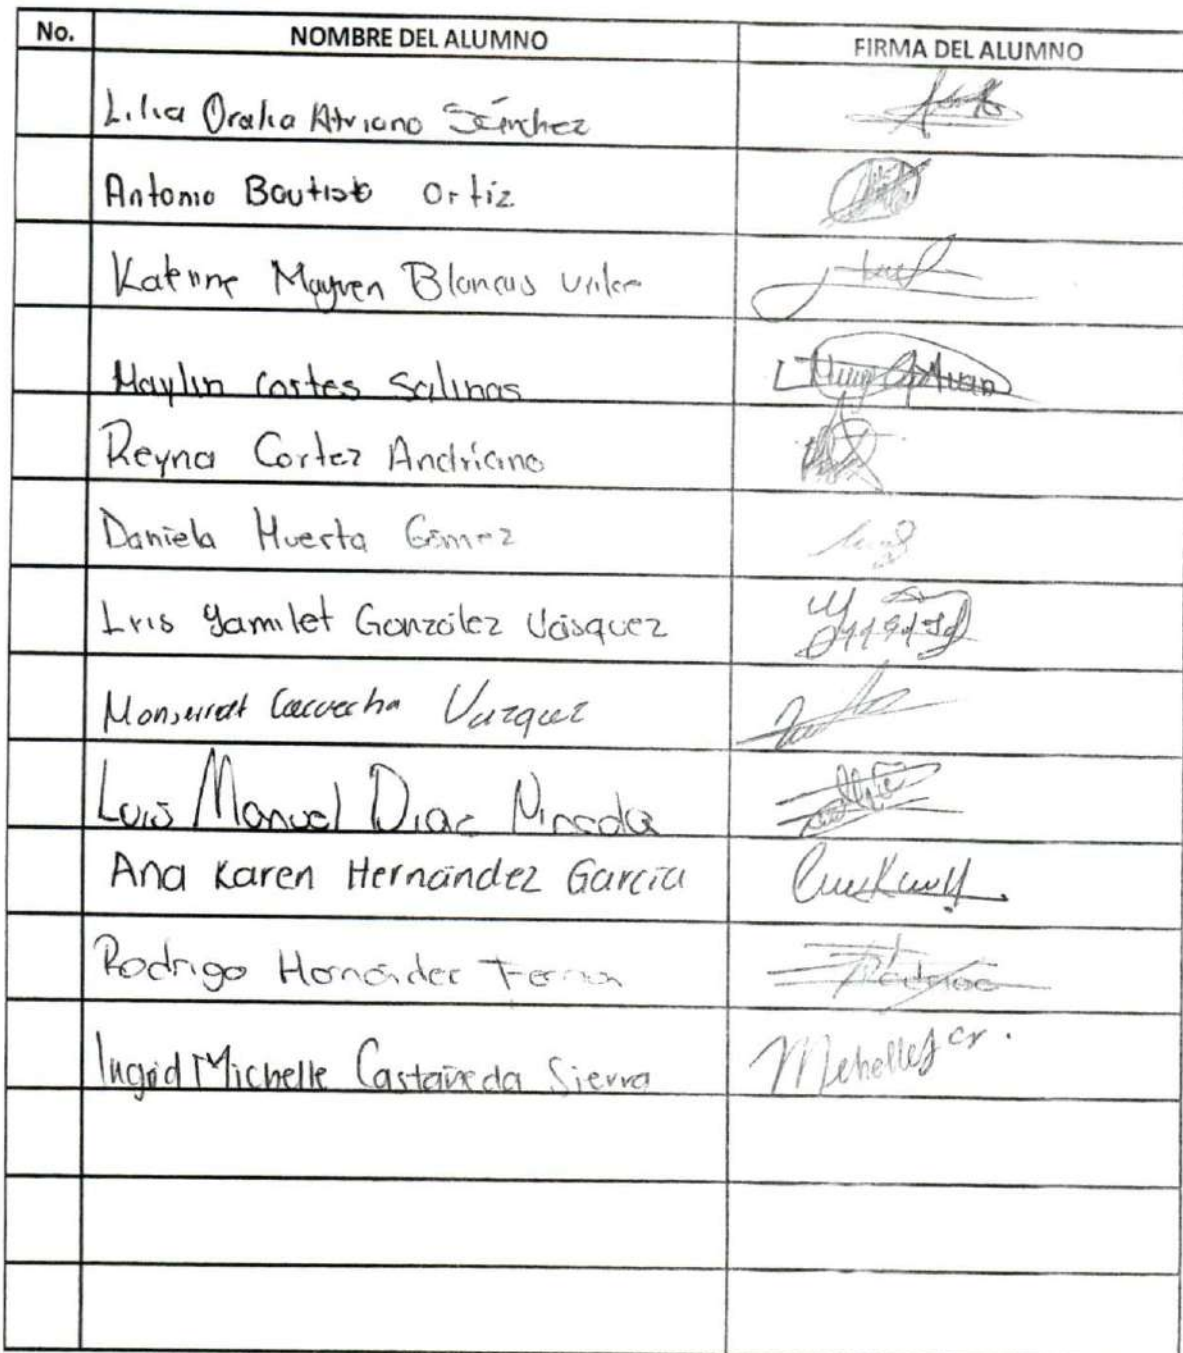 No. NOMBRE DEL ALUMNO FIRMA DEL ALUMNO
Lilia Oralia Atriano Sánchez
Antonio Bautista Ortiz
Mayren Blancas
Maylin Cortes Salinas
Reyna Cortez Andriano
Daniela Huerta Gómez
Iris Yamilet González Vásquez
Monserrat Vazquez
Luis Manuel Diaz Pineda
Ana Karen Hernández García
Rodrigo Hernández
Ingrid Michelle Castañeda Sierra